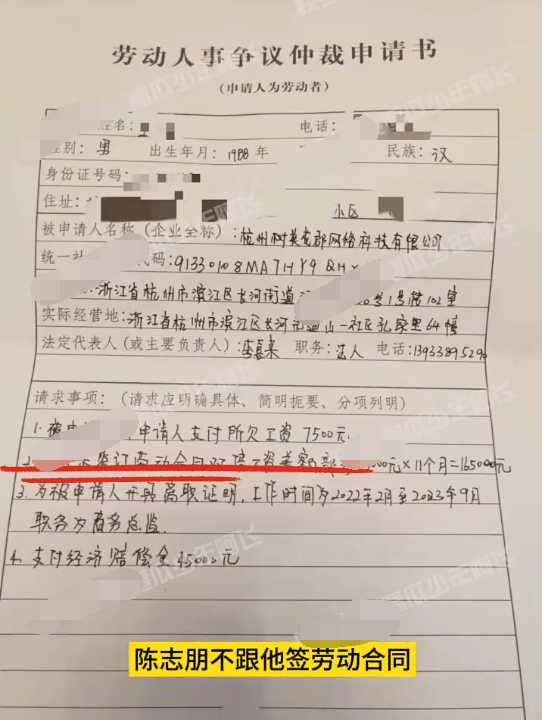 劳动人事争议仲裁申请书
（申请人为劳动者）
姓名： 电话：
性别：男 出生年月：1988年 民族：汉
身份证号码：
住址： 小区
被申请人名称（企业全称）：杭州树英龙郡网络科技有限公司
统一社 代码：91330108MA7HY9QHX
浙江省杭州市滨江区长河街道 1号楼102室
实际经营地：浙江省杭州市滨江区长河 山一社区孔家里64幢
法定代表人（或主要负责人）： 职务：法人 电话：1393389529
请求事项：（请求应明确具体、简明扼要、分项列明）
1. 被申 申请人支付所欠工资7500元
2. 签订劳动合同双倍工资差额部 000元×11个月=165000元
3. 为被申请人开具离职证明，工作时间为2022年2月至2023年9月
职务为商务总监.
4. 支付经济赔偿金45000元
陈志朋不跟他签劳动合同